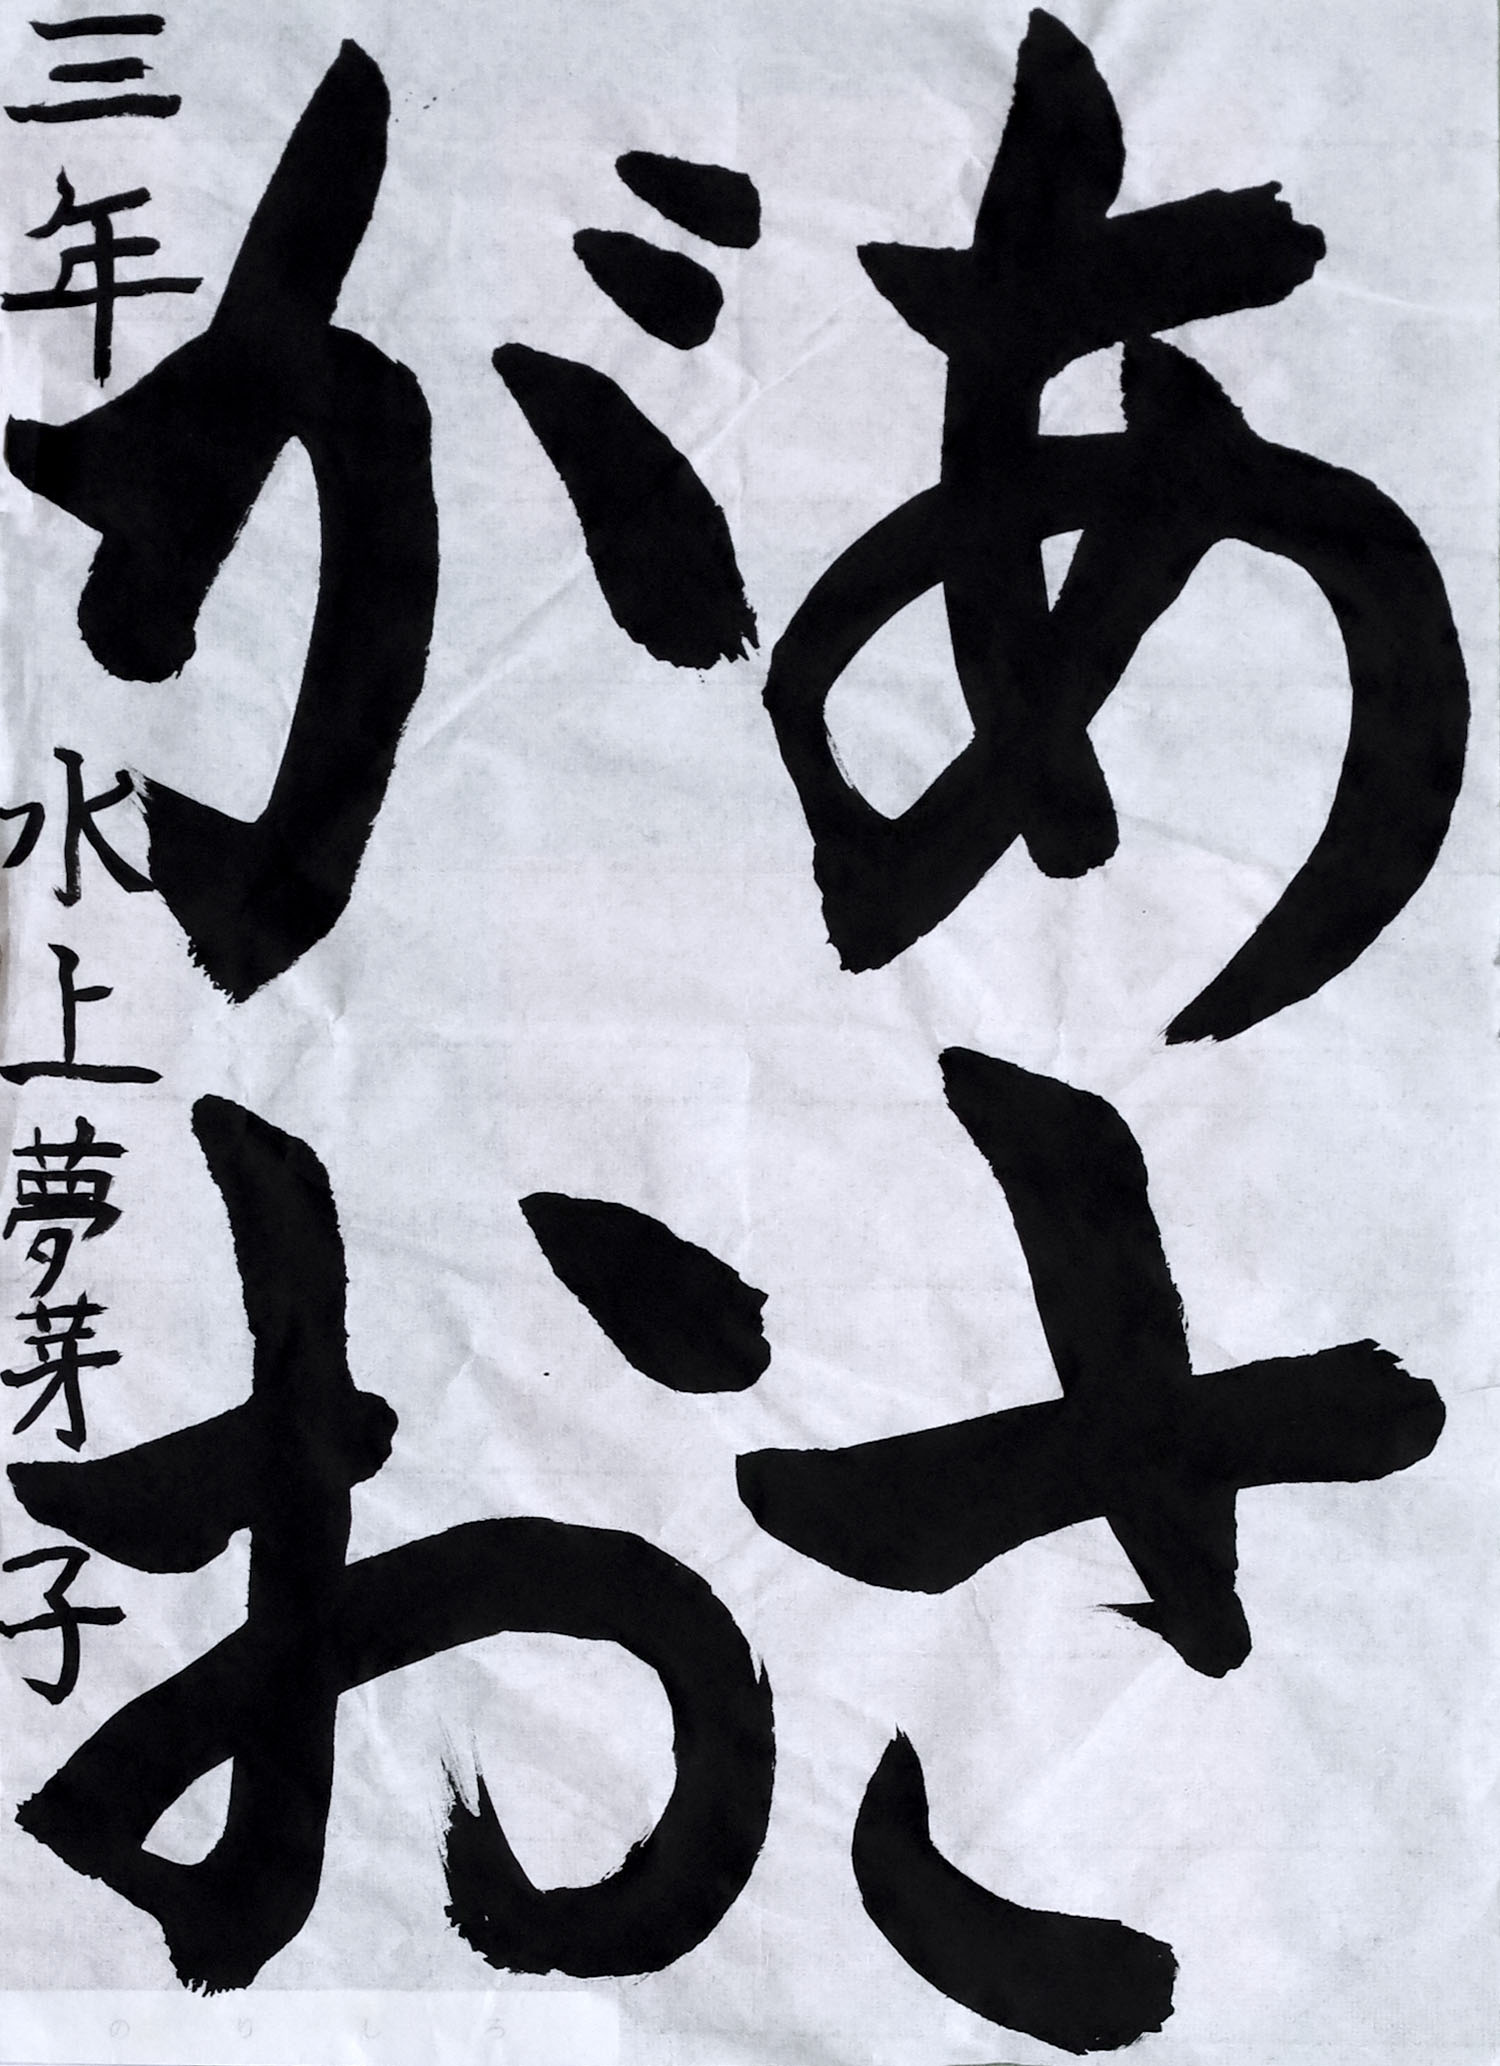 あさ
がお
三年 水上夢芽子
のりしろ